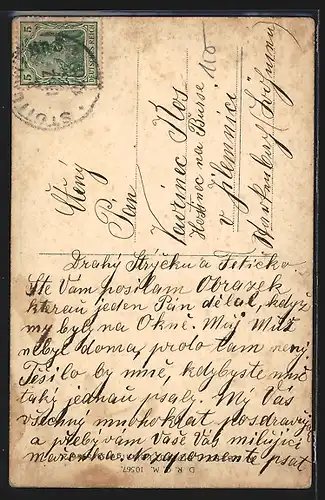 5 5
STUTT
Ctěný
Pán
Vavřinec Kos
Hostinec na Burse 110
v Jilemnici
Starkenbach (Böhmen)
Drahý Strýčku a Tetičko.
Ste Vám posílam Obrazek
kterau jeden Pán dělal, když
my byly na Okně. Můj Muž
nebyl doma, proto tam neny
Těšilo by mně, kdybyste mně
taky jednau psaly. My Vás
všechny mnohokrat pozdravuj
a přeby vám Vaše Vás milující
Mařenka. Nezapomente psat
D. R. G. M. 10567.